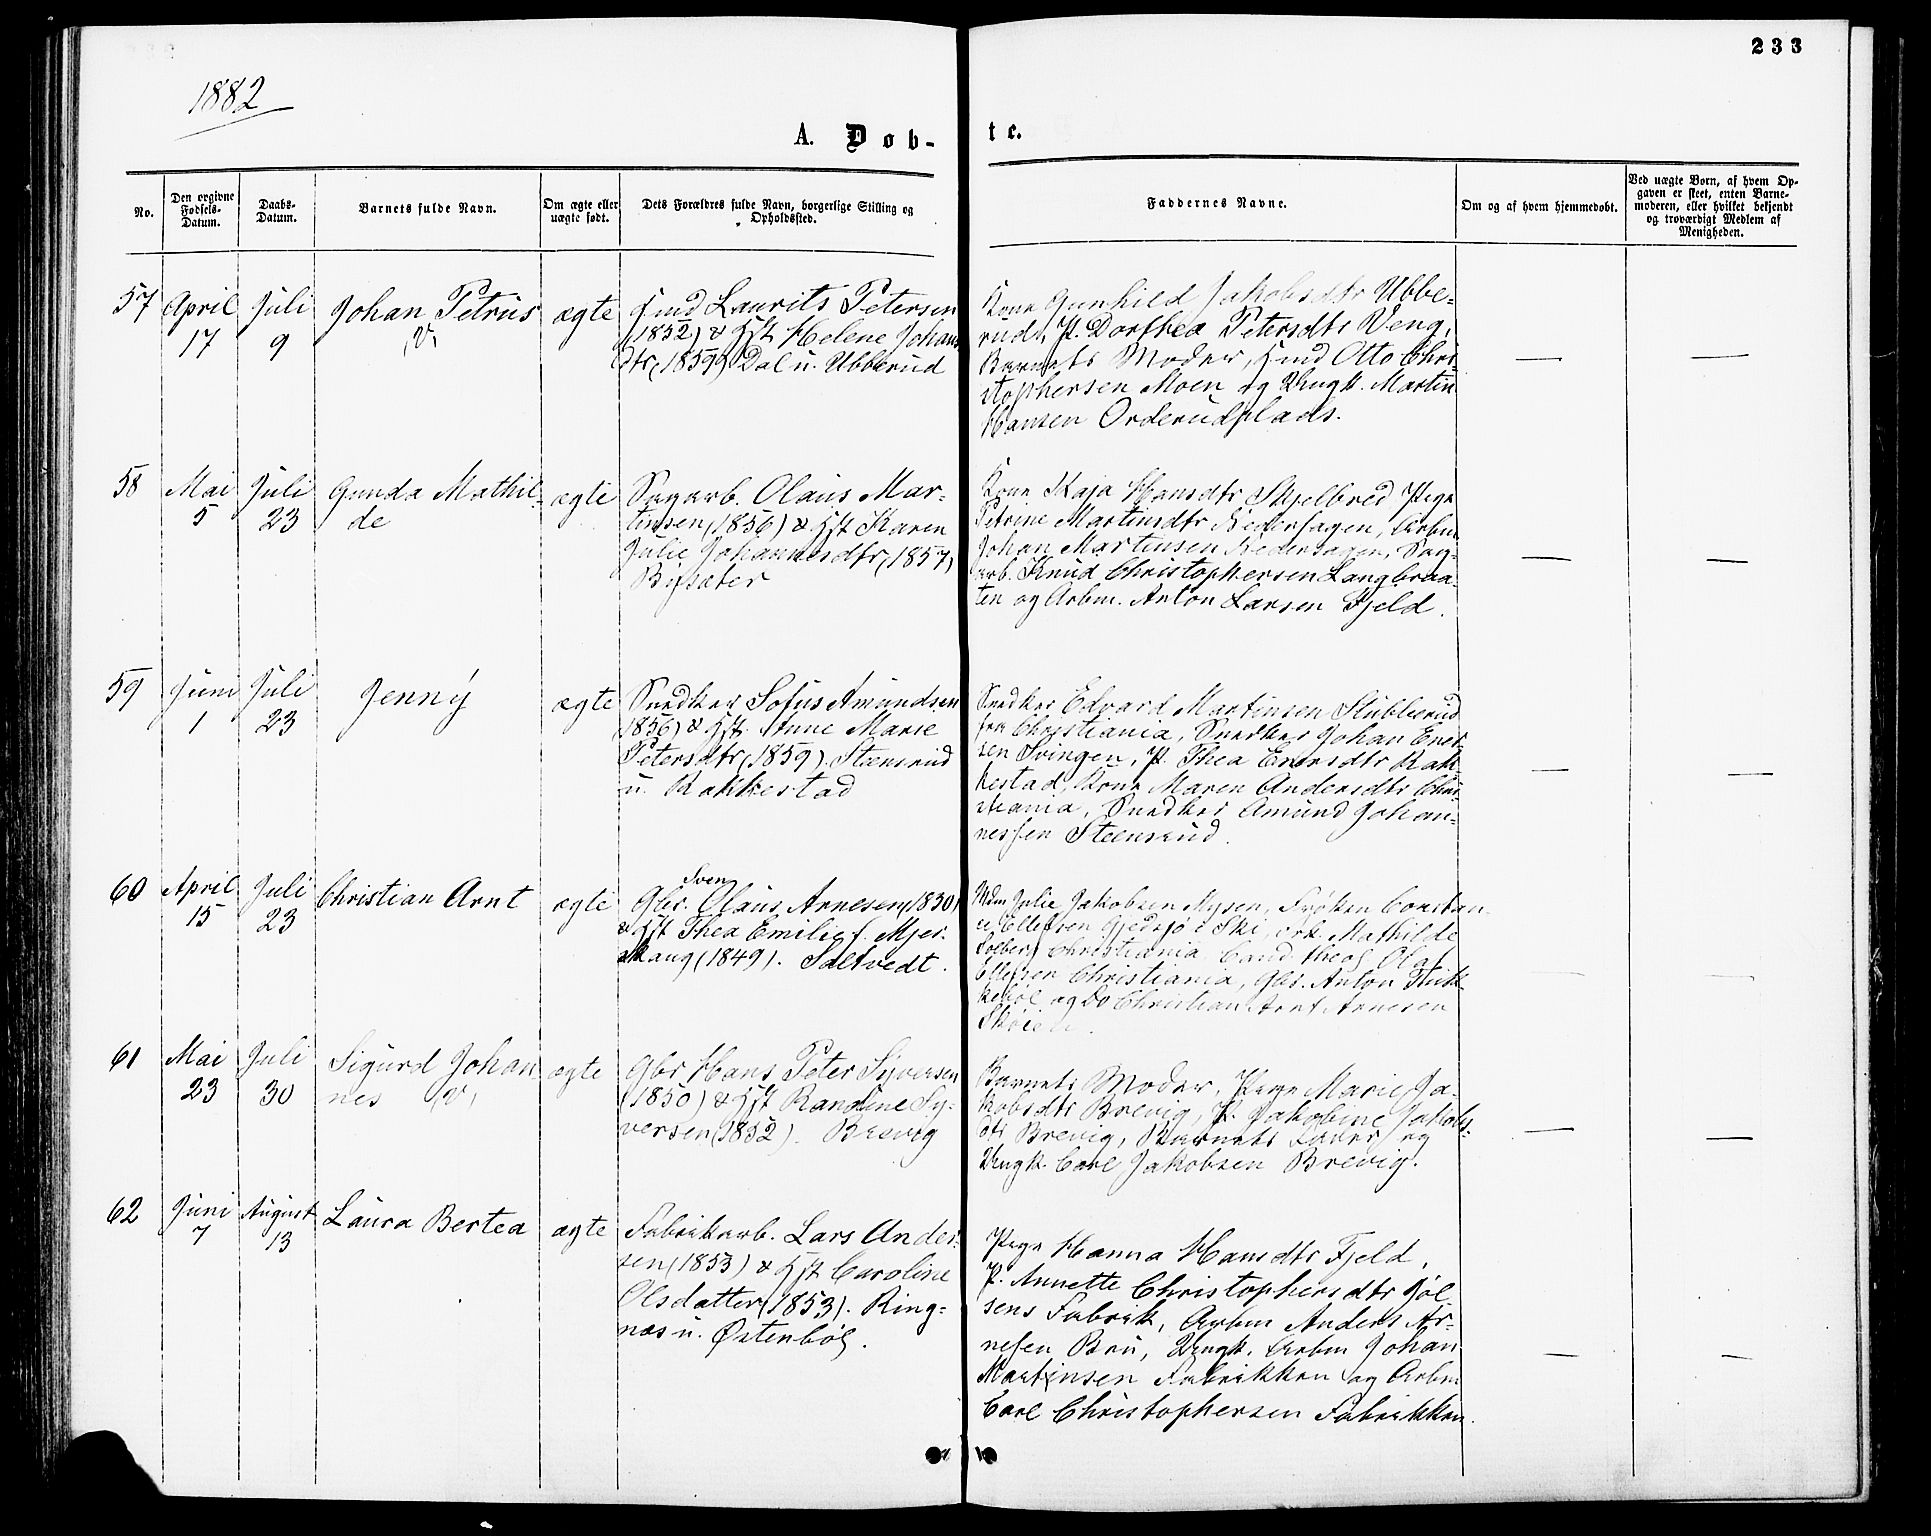 233
1882
A. Døb-
te.
No.
Den opgivne
Fødsels-
Datum.
Daabs-
Datum.
Barnets fulde Navn.
Om ægte eller
uægte født.
Dets Forældres fulde Navn, borgerlige Stilling og
Opholdssted.
Faddernes Navne.
Om og af hvem hjemmedøbt.
Ved uægte Børn, af hvem Op-
gaven er skeet, enten Barne-
moderen, eller hvilket bekjendt
og troværdigt Medlem af
Menigheden.
57
April
17
Juli
9
Johan Petrus
(v)
ægte
Laurits Petersen
(1852) & Hst Helene Johans
dtr (1859) Dal u. Ubberud
Kone Gunhild Jakobsdtr Ubbe-
rud, P. Dorthea Petersdtr Veng,
Barnets Moder, Otto Chri-
stophersen Moen og Ungk. Martin
Hansen Orderudplads.
—
—
58
Mai
5
Juli
23
Gunda Mathil-
de
ægte
Sagarb. Olaus Mar-
tinsen (1856) & Hst Karen
Julie Johannesdtr (1857)
Bysæter
Kone Kaja Hansdtr Skjelbred Pige
Petrine Martinsdtr Nedersagen, Arbm
Johan Martinsen Nedersagen, Sag-
arb. Knud Christophersen Langbraa-
ten og Arbm. Anton Larsen Fjeld.
—
—
59
Juni
1
Juli
23
Jenny
ægte
Snedker Sofus Amundsen
(1856) & Hst. Anne Marie
Petersdtr (1859). Steensrud
u. Rakkestad
Snedker Edvard Martinsen Stubberud
fra Christiania, Snedker Johan Ener-
sen Svingen, P. Thea Enersdtr Rak-
kestad, Kone Maren Andersdtr Chri-
stiania, Snedker Amund Johan-
nessen Steensrud.
—
—
60
April
15
Juli
23
Christian Arnt
ægte
Sven
Gbr. Olaus Arnesen (1830)
& Hst Thea Emilie f. Mjer-
skaug (1849). Saltvedt.
Mdm Julie Jakobsen Mysen, Frøken Constan-
ce Ellefsen Gjedsjø i Ski, Mathilde
Solberg Christiania Cand. theol Olaf
Ellefsen Christiania, Gbr. Anton Stik-
og Do Christian Arnt Arnesen
Skøien.
—
—
61
Mai
23
Juli
30
Sigurd Johan
nes (v)
ægte
Gbr Hans Peter Syversen
(1850) & Hst Randine Sy-
versen (1852). Brevig
Barnets Moder, Pige Marie Ja-
kobsdtr Brevig, P. Jakobine Jakobs-
dtr Brevig, Barnets Fader og
Ungk. Carl Jakobsen Brevig.
—
—
62
Juni
7
August
13
Laura Bertea
ægte
Fabrikarb. Lars Ander-
sen (1853) & Hst Caroline
Olsdatter (1853). Ring-
næs u. Østenbøl.
Pige Hanna Hansdtr Fjeld,
P. Annette Christophersdtr Jøl
sens Fabrik, Arbm Anders Ar-
nesen Bru, Ungk. Arbm Johan
Martinsen Fabrikken og Arbm
Carl Christophersen Fabrikken.
—
—